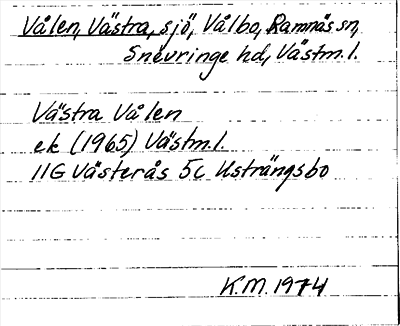 Vålen, Västra, sjö, Vålbo, Ramnäs sn,
Snevringe hd, Västm.l.
Västra Vålen
ek (1965) Västm.l.
11G Västerås 5c Usträngsbo
K.M. 1974